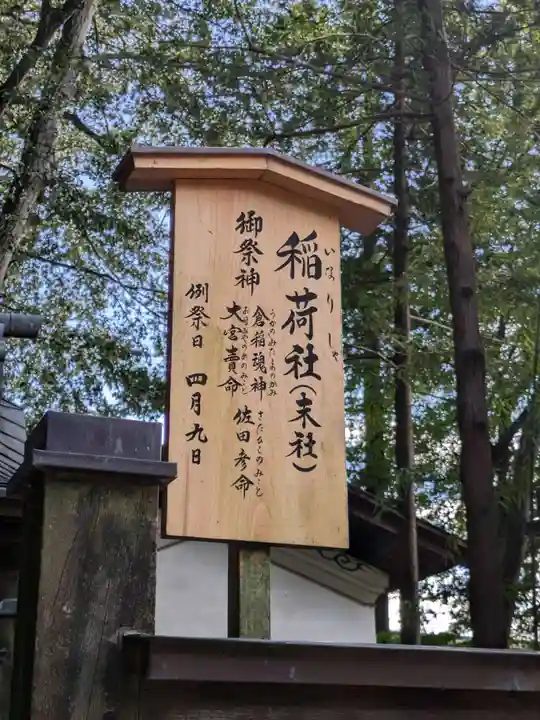 稲荷社(末社)
いなりしゃ
御祭神
倉稲魂神
うかのみたまのかみ
佐田彦命
さたひこのみこと
大宮賣命
おおみやのめのみこと
例祭日 四月九日